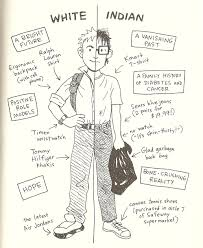 WHITE
INDIAN
A BRIGHT
FUTURE
Ralph
Lauren
shirt
Ergonomic
backpack
POSITIVE
ROLE
MODELS
Timex
wristwatch
Tommy
Hilfiger
khakis
HOPE
the latest
Air Jordans
A VANISHING
PAST
Kmart
T-shirt
A FAMILY HISTORY
OF DIABETES AND
CANCER
Sears blue jeans
(2 pairs for
$19.99)
no watch
Glad garbage
book bag
BONE-CRUSHING
REALITY
canvas tennis shoes
(purchased in aisle
of Safeway
supermarket)